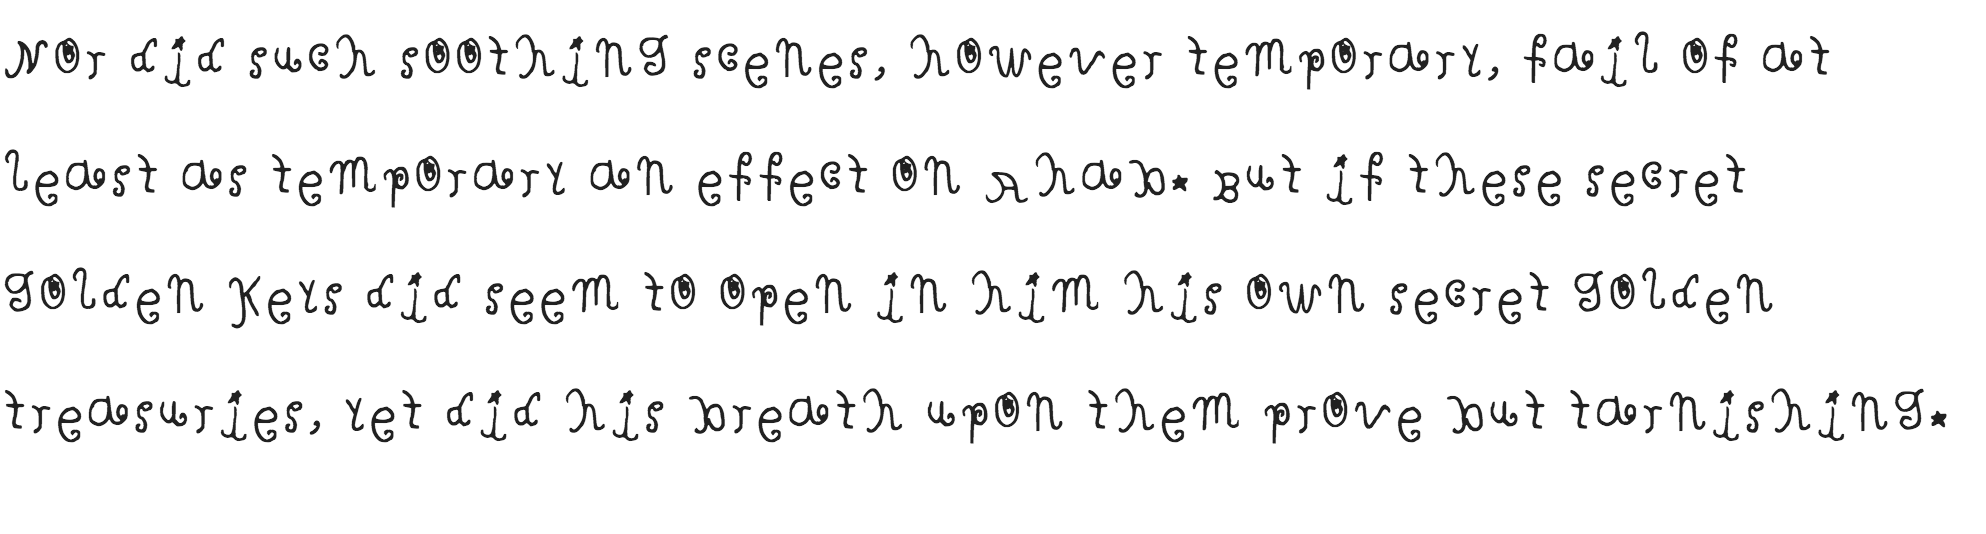 Nor did such soothing scenes, however temporary, fail of at
least as temporary an effect on Ahab. But if these secret
golden keys did seem to open in him his own secret golden
treasuries, yet did his breath upon them prove but tarnishing.